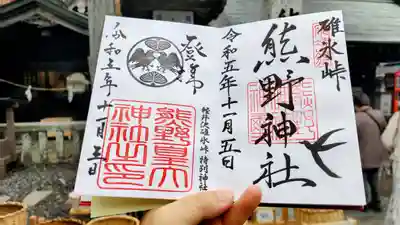 碓氷峠
熊野神社
令和五年十一月五日
軽井沢碓氷峠 特別神社
登拝
熊野皇大
神社之印
令和五年十一月五日